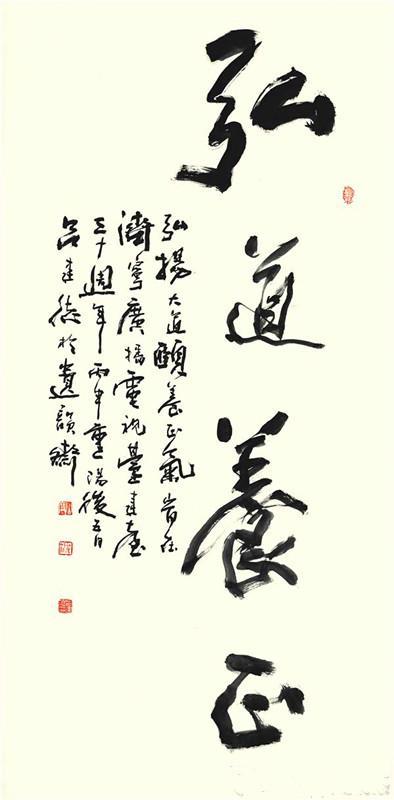 弘道養正
弘揚大道頤養正氣
濟寧廣播電視臺建臺
三十週年丙申重陽後五日
呂建德於遺韻齋